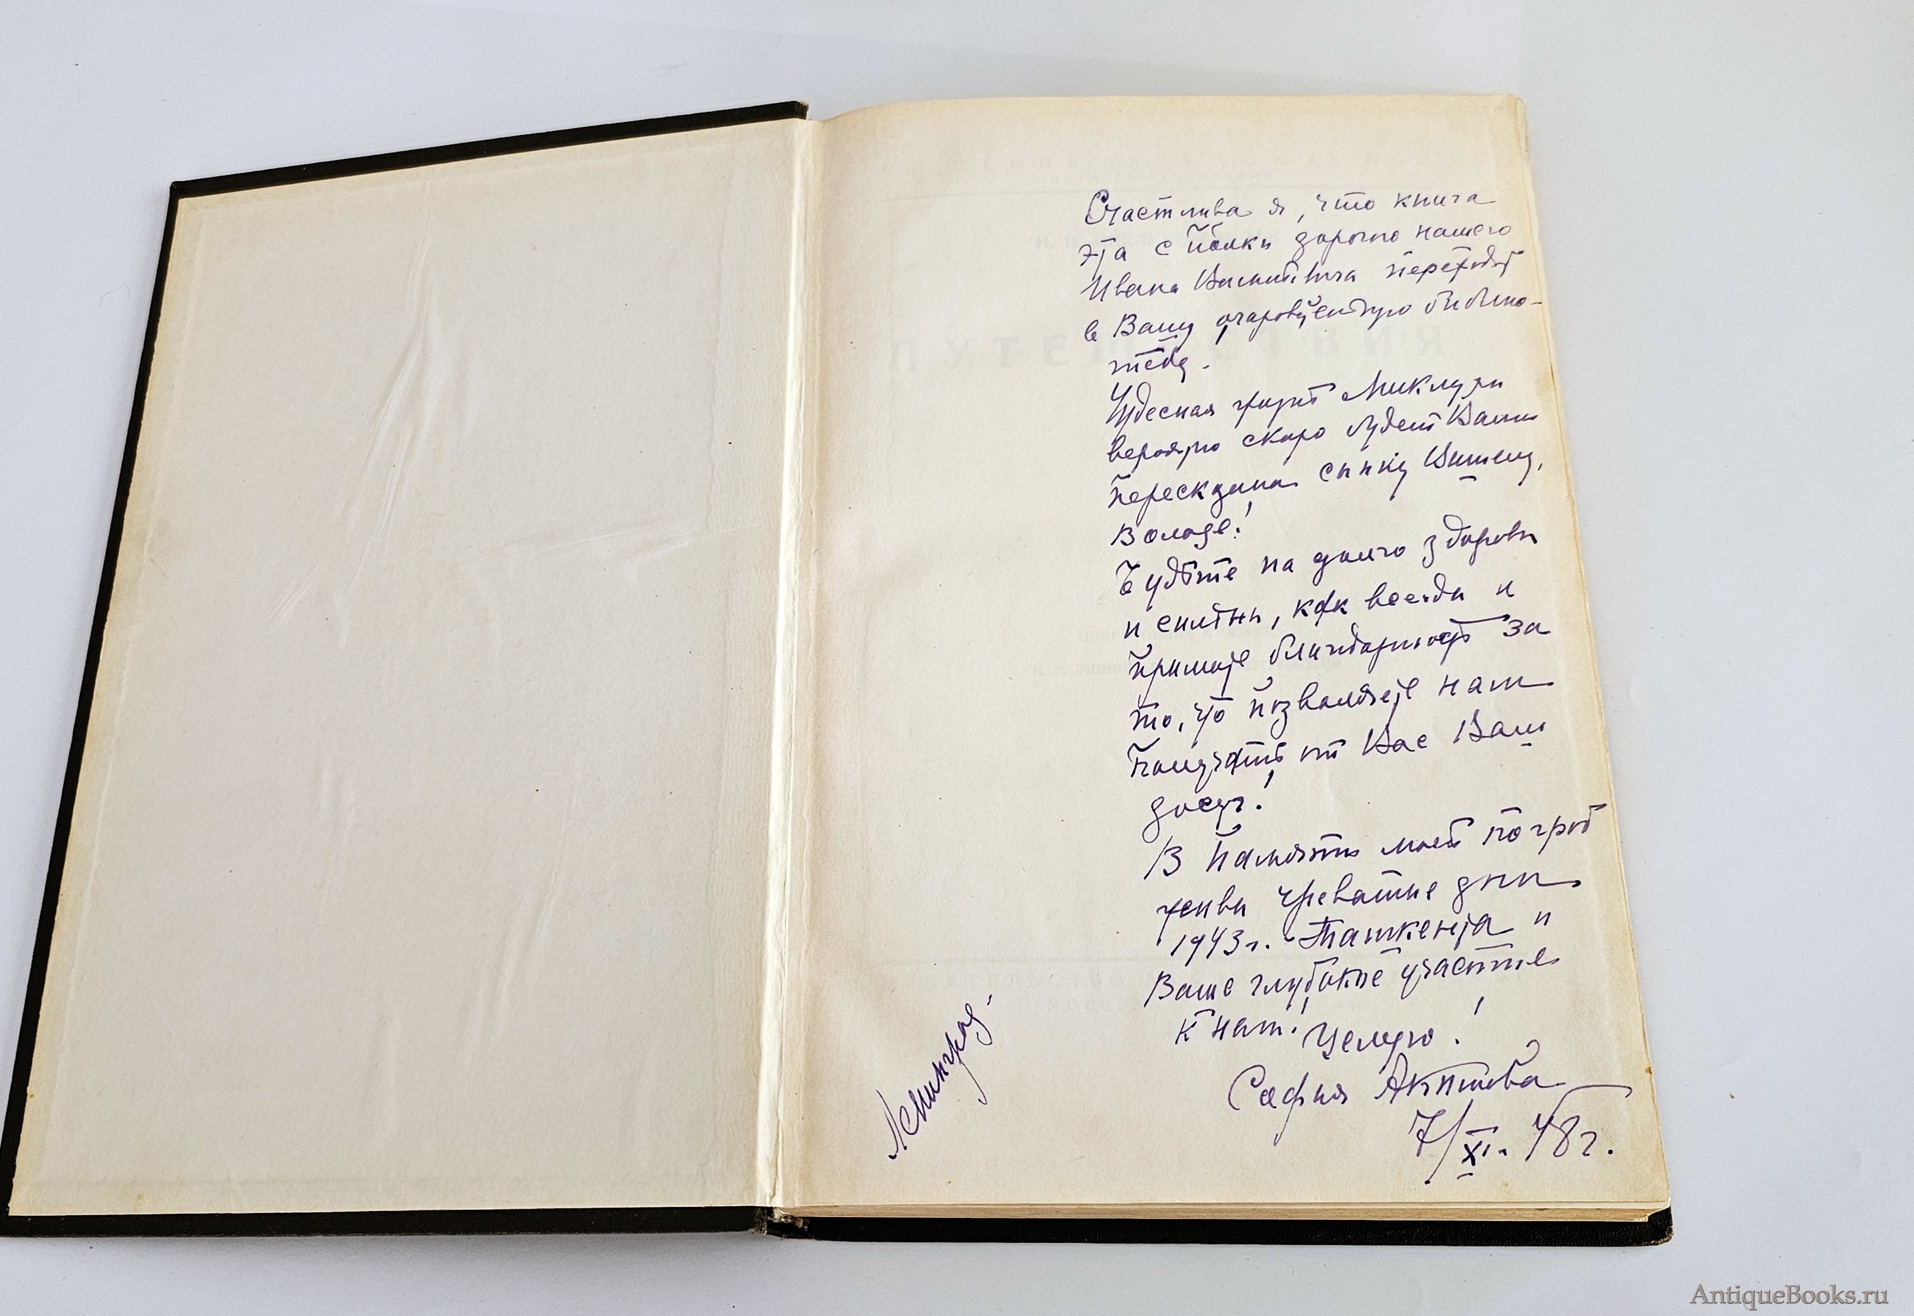 Счастлива я, что книга
эта с полки дорогого нашего
Ивана переходит
в Вашу очаровательную библио-
теку.
Чудесная Миклухи
вероятно скоро будет Вами
пересказана сынку Вашему,
Володе!
Будьте на долго здоровы
и сильны, как всегда и
примите благодарность за
то, что позволяете нам
получать от Вас Ваш
досуг!
В память моей по гроб
жизни чреватые дни
1943 г. Ташкента и
Ваше глубокое участие
к нам! Целую!
София Акимова
7/XI. 48 г.
Ленинград.
ПУТЕШЕСТВИЯ
AntiqueBooks.ru